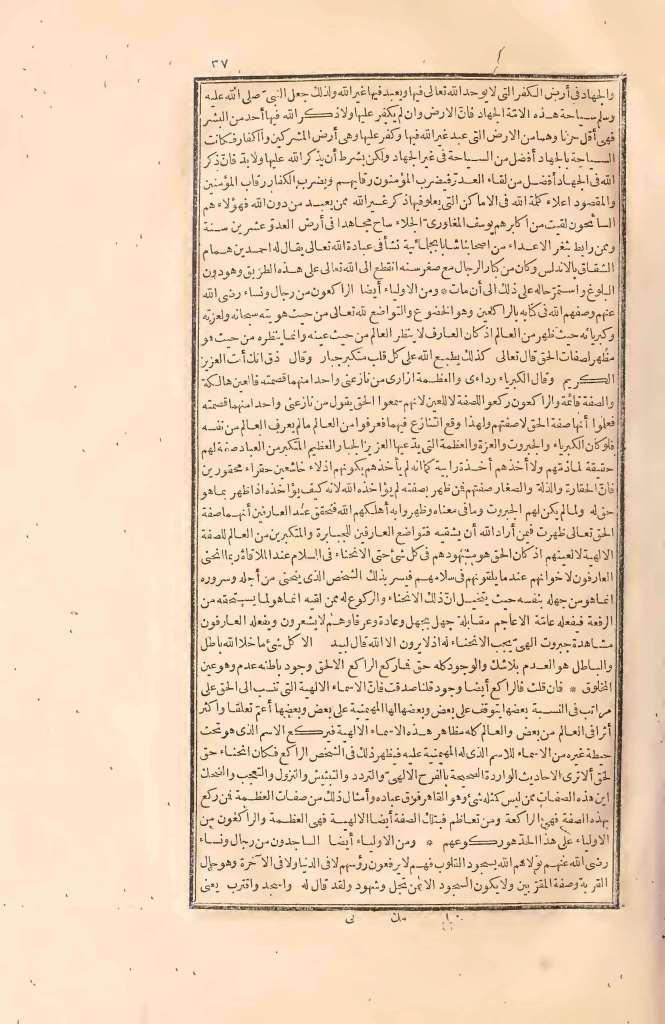 ٣٧
والجهاد فى أرض الكفر التى لا يوحد الله تعالى فيها ويعبد فيها غير الله ولذلك جعل النبى صلى الله عليه
وسلم سياحة هذه الامّة الجهاد فانّ الارض وان لم يكفر عليها ولا ذكر الله فيها أحد من البشر
فهى أقل حزنا وهما من الارض التى عبد غير الله فيها وكفر عليها وهى أرض المشركين والكفار فكانت
السياحة بالجهاد أفضل من السياحة فى غير الجهاد ولكن بشرط أن يذكر الله عليها ولا بدّ فانّ ذكر
الله فى الجهاد أفضل من لقاء العدوّ فيضرب المؤمنون رقابهم ويضرب الكفار رقاب المؤمنين
والمقصود اعلاء كلمة الله فى الاماكن التى يعلو فيها ذكر غير الله ممن يعبد من دون الله فهؤلاء هم
السائحون لقيت من أكابرهم يوسف المغاورى الجلاء ساح مجاهدا فى أرض العدوّ عشرين سنة
وممن رابط بثغر الاعداء من أصحابنا شاب بجلمانية نشأ فى عبادة الله تعالى يقال له احمد بن همام
الشقاق بالاندلس وكان من كبار الرجال مع صغر سنه انقطع الى الله تعالى على هذه الطريق وهو دون
البلوغ واستمرّ حاله على ذلك الى أن مات * ومن الاولياء أيضا الراكعون من رجال ونساء رضى الله
عنهم وصفهم الله فى كتابه بالراكعين وهو الخضوع والتواضع لله تعالى من حيث هويته سبحانه ولعزته
وكبريائه حيث ظهر من العالم اذ كان العارف لا ينظر العالم من حيث عينه وانما ينظره من حيث هو
مظهر لصفات الحق قال تعالى كذلك يطبع الله على كل قلب متكبر جبار وقال ذق انك أنت العزيز
الكريم وقال الكبرياء ردائى والعظمة ازارى من نازعنى واحدا منهما قصمته فالعين هالكة
والصفة قائمة والراكعون ركعوا للصفة لا للعين لانهم سمعوا الحق يقول من نازعنى واحدا منهما قصمته
فعلموا أنها صفة الحق لا صفتهم ولهذا وقع التنازع فيهما فعرفوا من العالم ما لم يعرف العالم من نفسه
فلو كان الكبرياء والجبروت والعزة والعظمة التى يدّعيها العزيز الجبار العظيم المتكبر من العباد صفة لهم
حقيقة لما ذمّهم ولا أخذهم أخذة رابية كما انه لم يأخذهم بكونهم اذلاء خاشعين حقراء محقورين
فانّ الحقارة والذلة والصغار صفتهم فمن ظهر بصفته لم يؤاخذه الله لانه كيف يؤاخذه اذا ظهر بما هو
حق له ولما لم يكن لهم الجبروت وما فى معناه وظهروا به أهلكهم الله فتحقق عند العارفين أنها صفة
الحق تعالى ظهرت فيمن أراد الله أن يشقيه فتواضع العارفين للجبابرة والمتكبرين من العالم للصفة
الالهية لا لعينهم اذ كان الحق هو مشهودهم فى كل شئ حتى الانحناء فى السلام عند الملاقاة ربما انحنى
العارفون لاخوانهم عندما يلقونهم فى سلامهم فيسر بذلك الشخص الذى ينحنى من أجله وسروره
انما هو من جهله بنفسه حيث يتخيل انّ ذلك الانحناء والركوع له ممن لقيه انما هو لما يستحقه من
الرفعة فيفعله عامّة الاعاجم مقابلة جهل بجهل وعادة وعرفا وهم لا يشعرون ويفعله العارفون
مشاهدة جبروت الهى يجب الانحناء له اذ لا يرون الا الله قال لبيد الا كل شئ ما خلا الله باطل
والباطل هو العدم بلا شك والوجود كله حق فما ركع الراكع الا لحق وجود باطنه عدم وهو عين
المخلوق * فان قلت فالراكع أيضا وجود قلنا صدقت فانّ الاسماء الالهية التى تنسب الى الحق على
مراتب فى النسبة بعضها يتوقف على بعض وبعضها لها المهيمنية على بعض وبعضها أعم تعلقا وأكثر
أثرا فى العالم من بعض والعالم كله مظاهر هذه الاسماء الالهية فيركع الاسم الذى هو تحت
حيطة غيره من الاسماء للاسم الذى له المهيمنية عليه فيظهر ذلك فى الشخص الراكع فكان انحناء حق
لحق ألا ترى الاحاديث الواردة الصحيحة بالفرح الالهى والتردد والتبشبش والنزول والتعجب والضحك
اين هذه الصفات ممن ليس كمثله شئ وهو القاهر فوق عباده وأمثال ذلك من صفات العظمة فمن ركع
بهذه الصفة فهى الراكعة ومن تعاظم فبتلك الصفة أيضا الالهية فهى العظمة والراكعون من
الاولياء على هذا الحدّ هو ركوعهم * ومن الاولياء أيضا الساجدون من رجال ونساء
رضى الله عنهم تولاهم الله بسجود القلوب فهم لا يرفعون رؤسهم لا فى الدنيا ولا فى الآخرة وهو حال
القربة وصفة المقرّبين ولا يكون السجود الا عن تجل وشهود ولهذا قال له واسجد واقترب يعنى